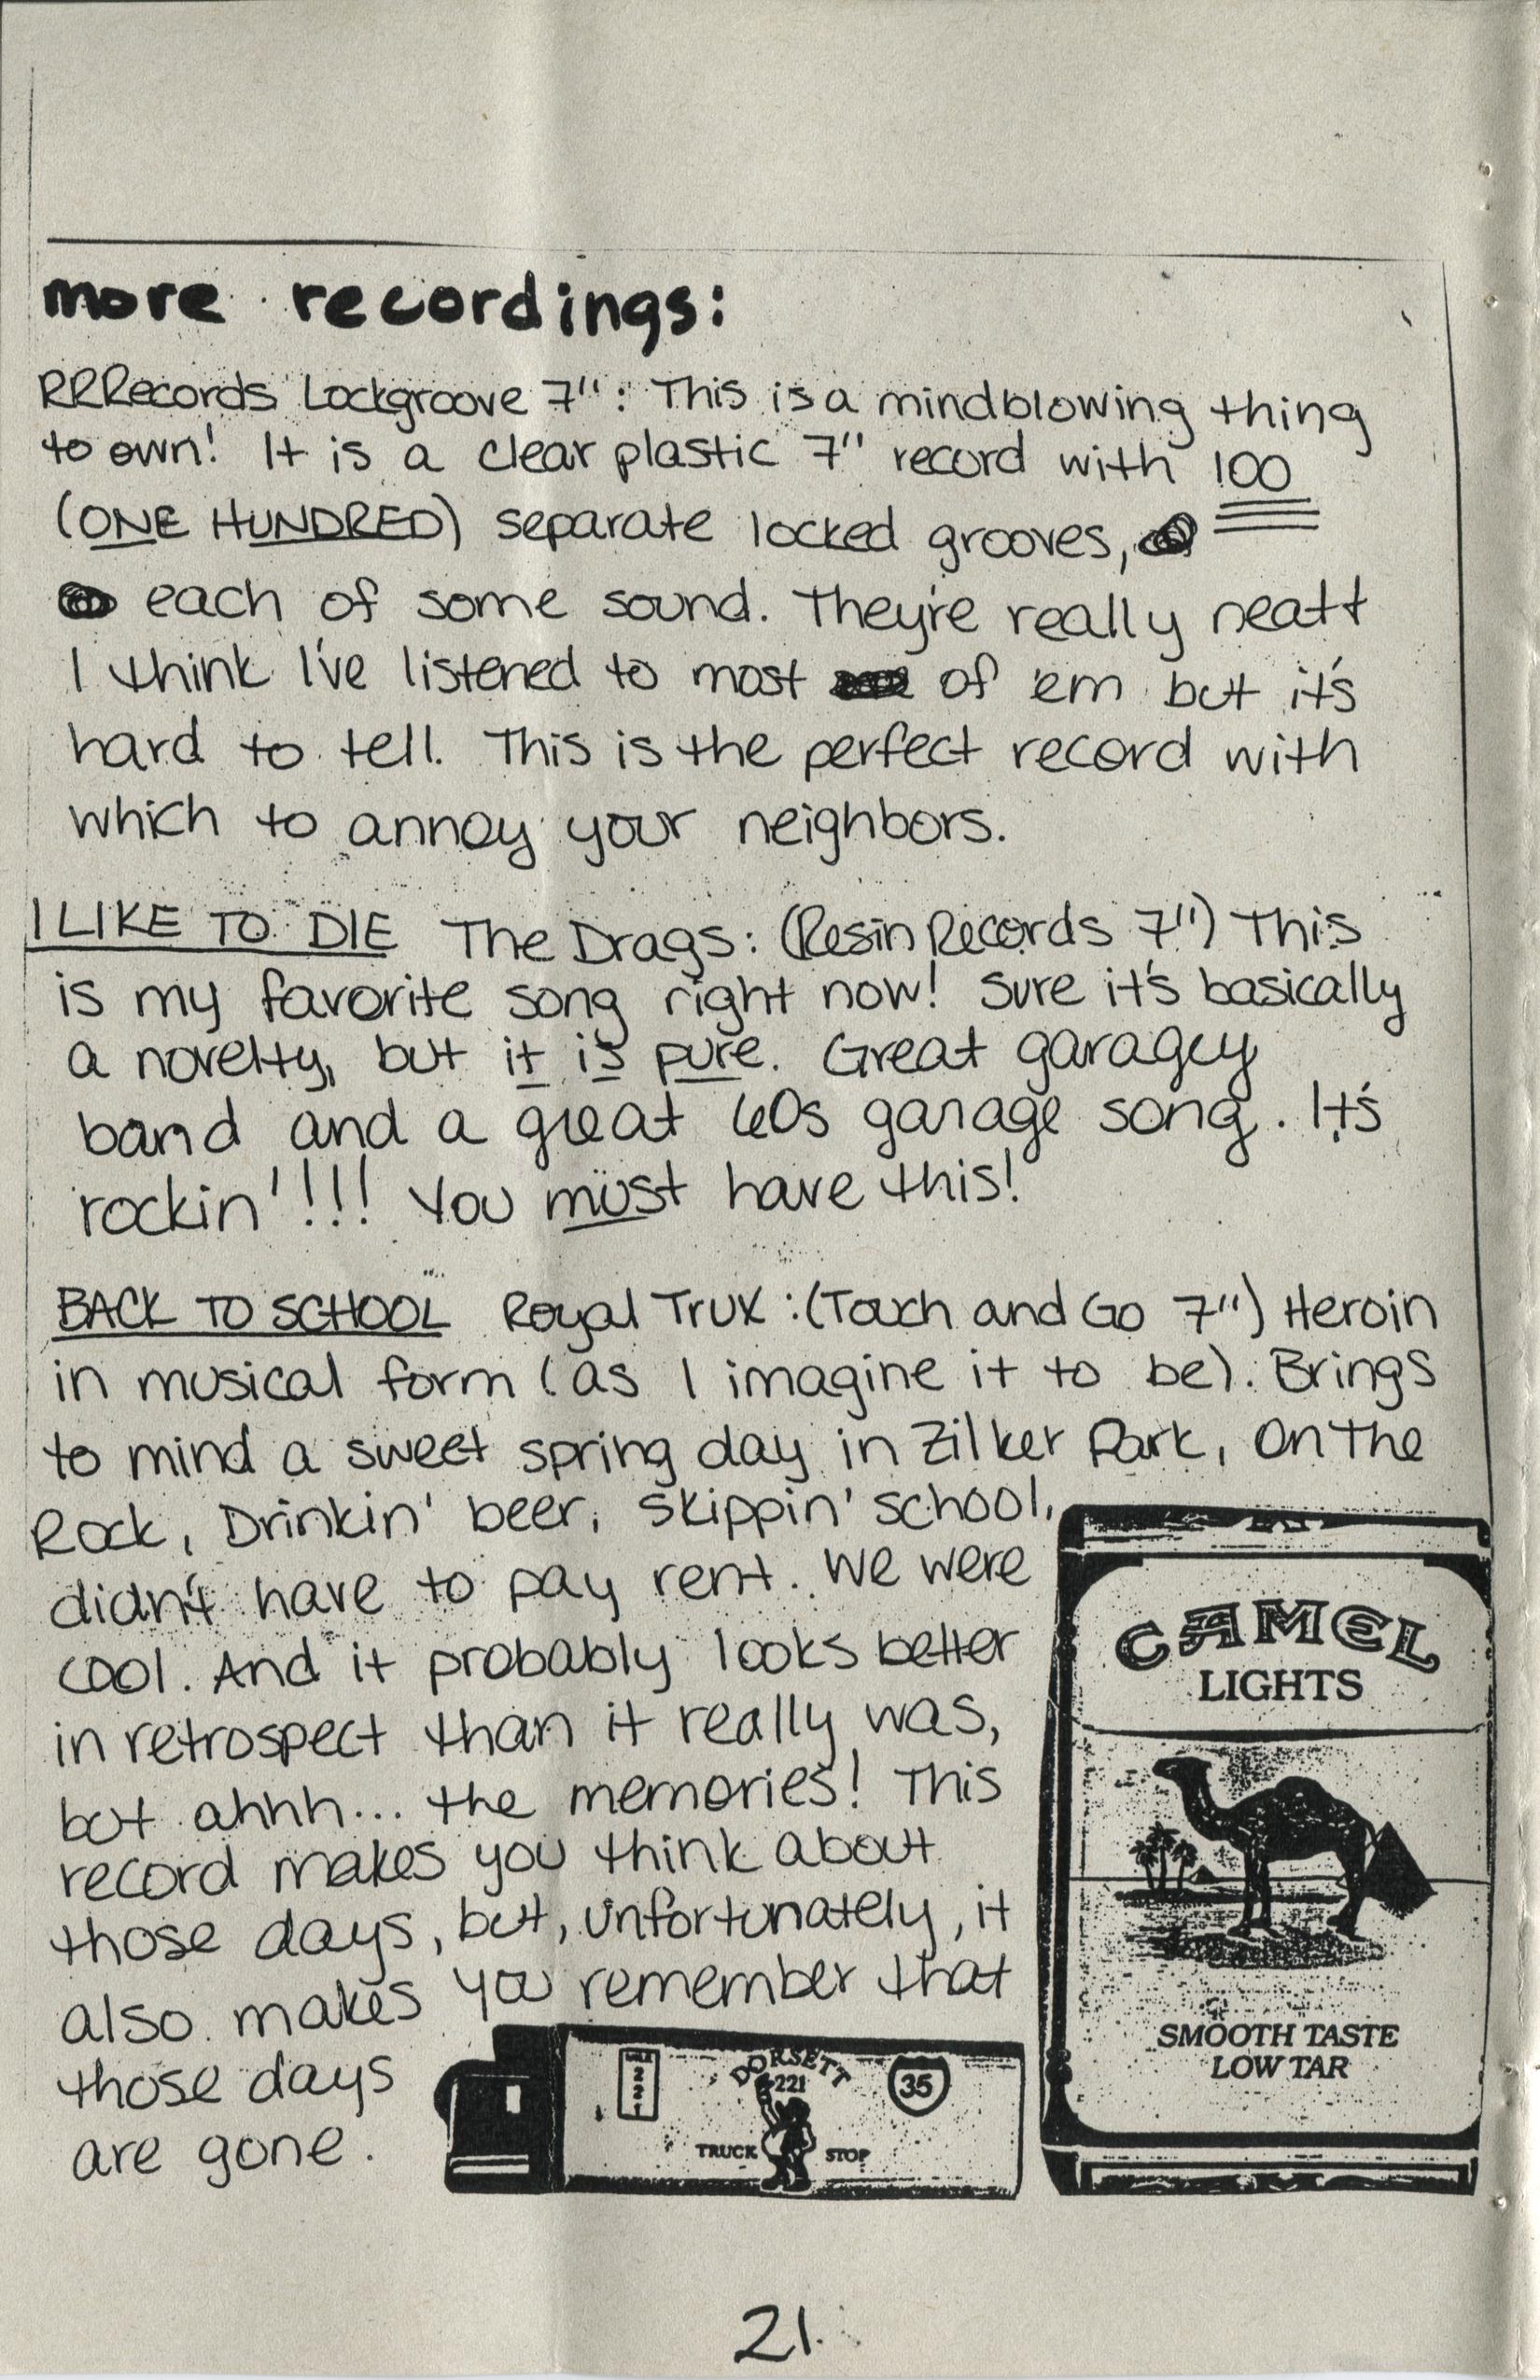 more recordings:
RRRecords Lockgroove 7": This is a mindblowing thing
to own! It is a clear plastic 7" record with 100
(ONE HUNDRED) separate locked grooves,
each of some sound. They're really neatt
I think I've listened to most of 'em but it's
hard to tell. This is the perfect record with
which to annoy your neighbors.
I LIKE TO DIE The Drags: (Resin Records 7") This
is my favorite song right now! Sure it's basically
a novelty, but it is pure. Great garagey
band and a great 60s garage song. It's
rockin'!!! You must have this!
BACK TO SCHOOL Royal Trux: (Touch and Go 7") Heroin
in musical form (as I imagine it to be). Brings
to mind a sweet spring day in Zilker Park, On the
Rock, Drinkin' beer, skippin' school,
didn't have to pay rent. We were
cool. And it probably looks better
in retrospect than it really was,
but ahhh... the memories! This
record makes you think about
those days, but, unfortunately, it
also makes you remember that
those days
are gone.
CAMEL
LIGHTS
SMOOTH TASTE
LOW TAR
DORSETT
221
35
TRUCK STOP
21.